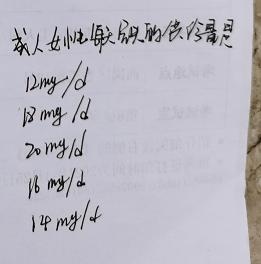 成人女性每天铁的供给量是
12mg/d
18mg/d
20mg/d
16mg/d
14mg/d